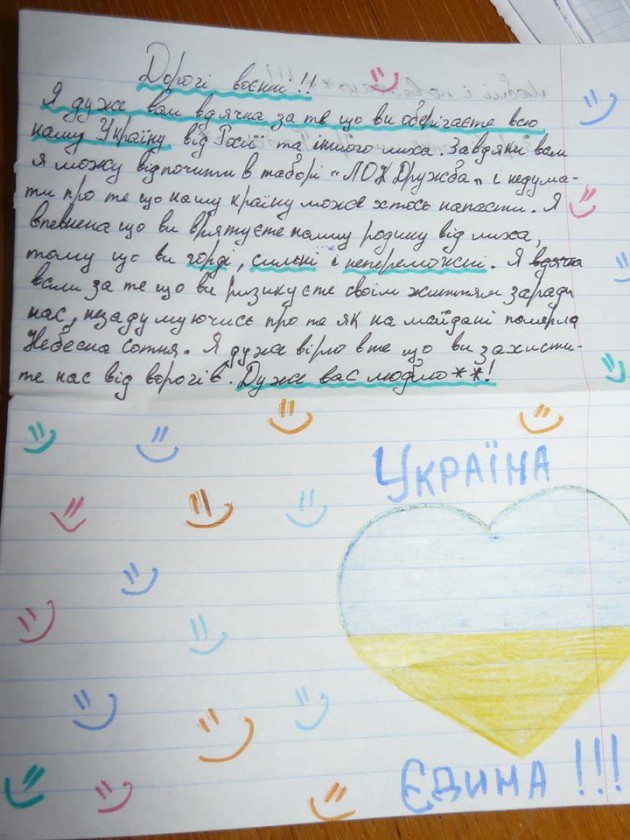 Дорогі воєнні!!
Я дуже вам вдячна за те що ви оберігаєте всю
нашу Україну від Росії та іншого лиха. Завдяки вам
я можу відпочити в таборі "ЛОК Дружба" і недума-
ти про те що нашу країну може хтось напасти. Я
впевнена що ви врятуєте нашу родину від лиха,
тому що ви горді, сильні і непереможні. Я вдячна
вам за те що ви ризикуєте своїм життям заради
нас, незадумуючись про те як на майдані померла
Небесна сотня. Я дуже вірю в те що ви захисти-
те нас від ворогів. Дуже вас люблю**!
УКРАЇНА
ЄДИНА!!!